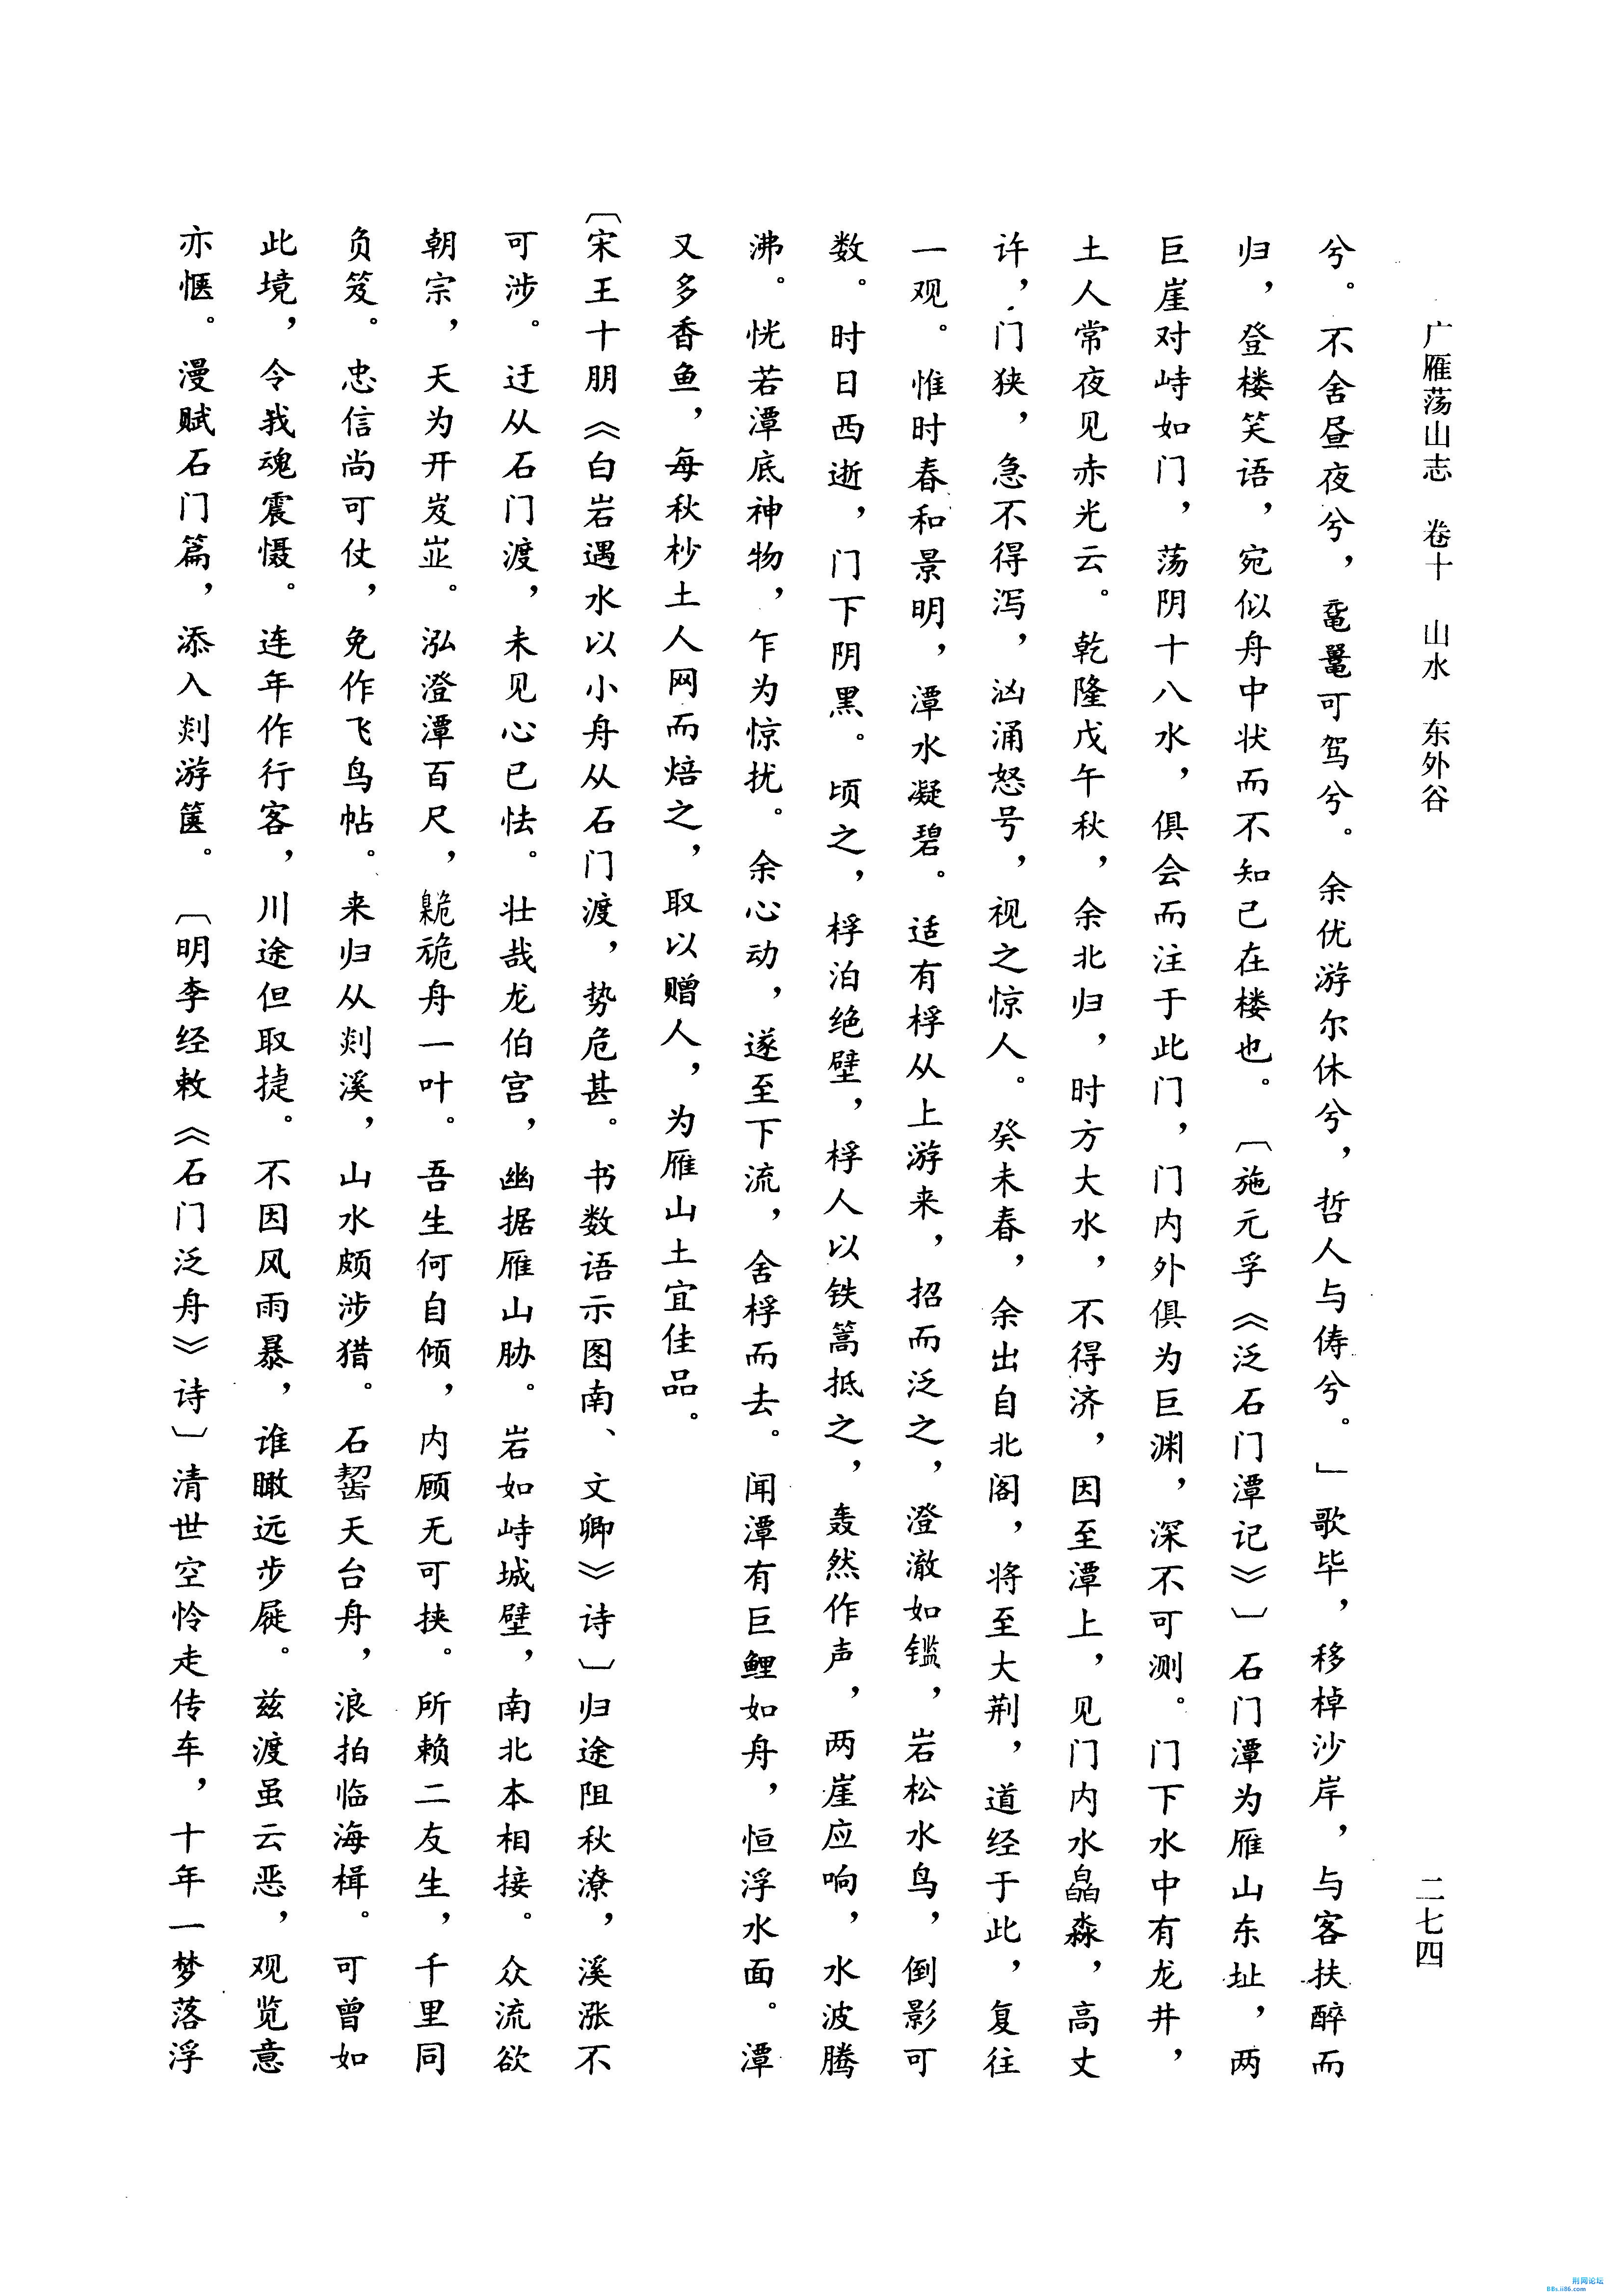 广雁荡山志 卷十 山水 东外谷
二七四
兮。不舍昼夜兮，鼋鼍可驾兮。余优游尔休兮，哲人与俦兮。」歌毕，移棹沙岸，与客扶醉而
归，登楼笑语，宛似舟中状而不知己在楼也。〔施元孚《泛石门潭记》〕石门潭为雁山东址，两
巨崖对峙如门，荡阴十八水，俱会而注于此门，门内外俱为巨渊，深不可测。门下水中有龙井，
土人常夜见赤光云。乾隆戊午秋，余北归，时方大水，不得济，因至潭上，见门内水皛淼，高丈
许，门狭，急不得泻，汹涌怒号，视之惊人。癸未春，余出自北阁，将至大荆，道经于此，复往
一观。惟时春和景明，潭水凝碧。适有桴从上游来，招而泛之，澄澈如镒，岩松水鸟，倒影可
数。时日西逝，门下阴黑。顷之，桴泊绝壁，桴人以铁篙抵之，轰然作声，两崖应响，水波腾
沸。恍若潭底神物，乍为惊扰。余心动，遂至下流，舍桴而去。闻潭有巨鲤如舟，恒浮水面。潭
又多香鱼，每秋杪土人网而焙之，取以赠人，为雁山土宜佳品。
〔宋王十朋《白岩遇水以小舟从石门渡，势危甚。书数语示图南、文卿》诗〕归途阻秋潦，溪涨不
可涉。迂从石门渡，未见心已怯。壮哉龙伯宫，幽据雁山胁。岩如峙城壁，南北本相接。众流欲
朝宗，天为开岌嶪。泓澄潭百尺，臲卼舟一叶。吾生何自倾，内顾无可挟。所赖二友生，千里同
负笈。忠信尚可仗，免作飞鸟帖。来归从剡溪，山水颇涉猎。石齧天台舟，浪拍临海楫。可曾如
此境，令我魂震慑。连年作行客，川途但取捷。不因风雨暴，谁瞰远步屣。兹渡虽云恶，观览意
亦惬。漫赋石门篇，添入剡游箧。〔明李经敕《石门泛舟》诗〕清世空怜走传车，十年一梦落浮
荆网论坛
BBs.ii86.com